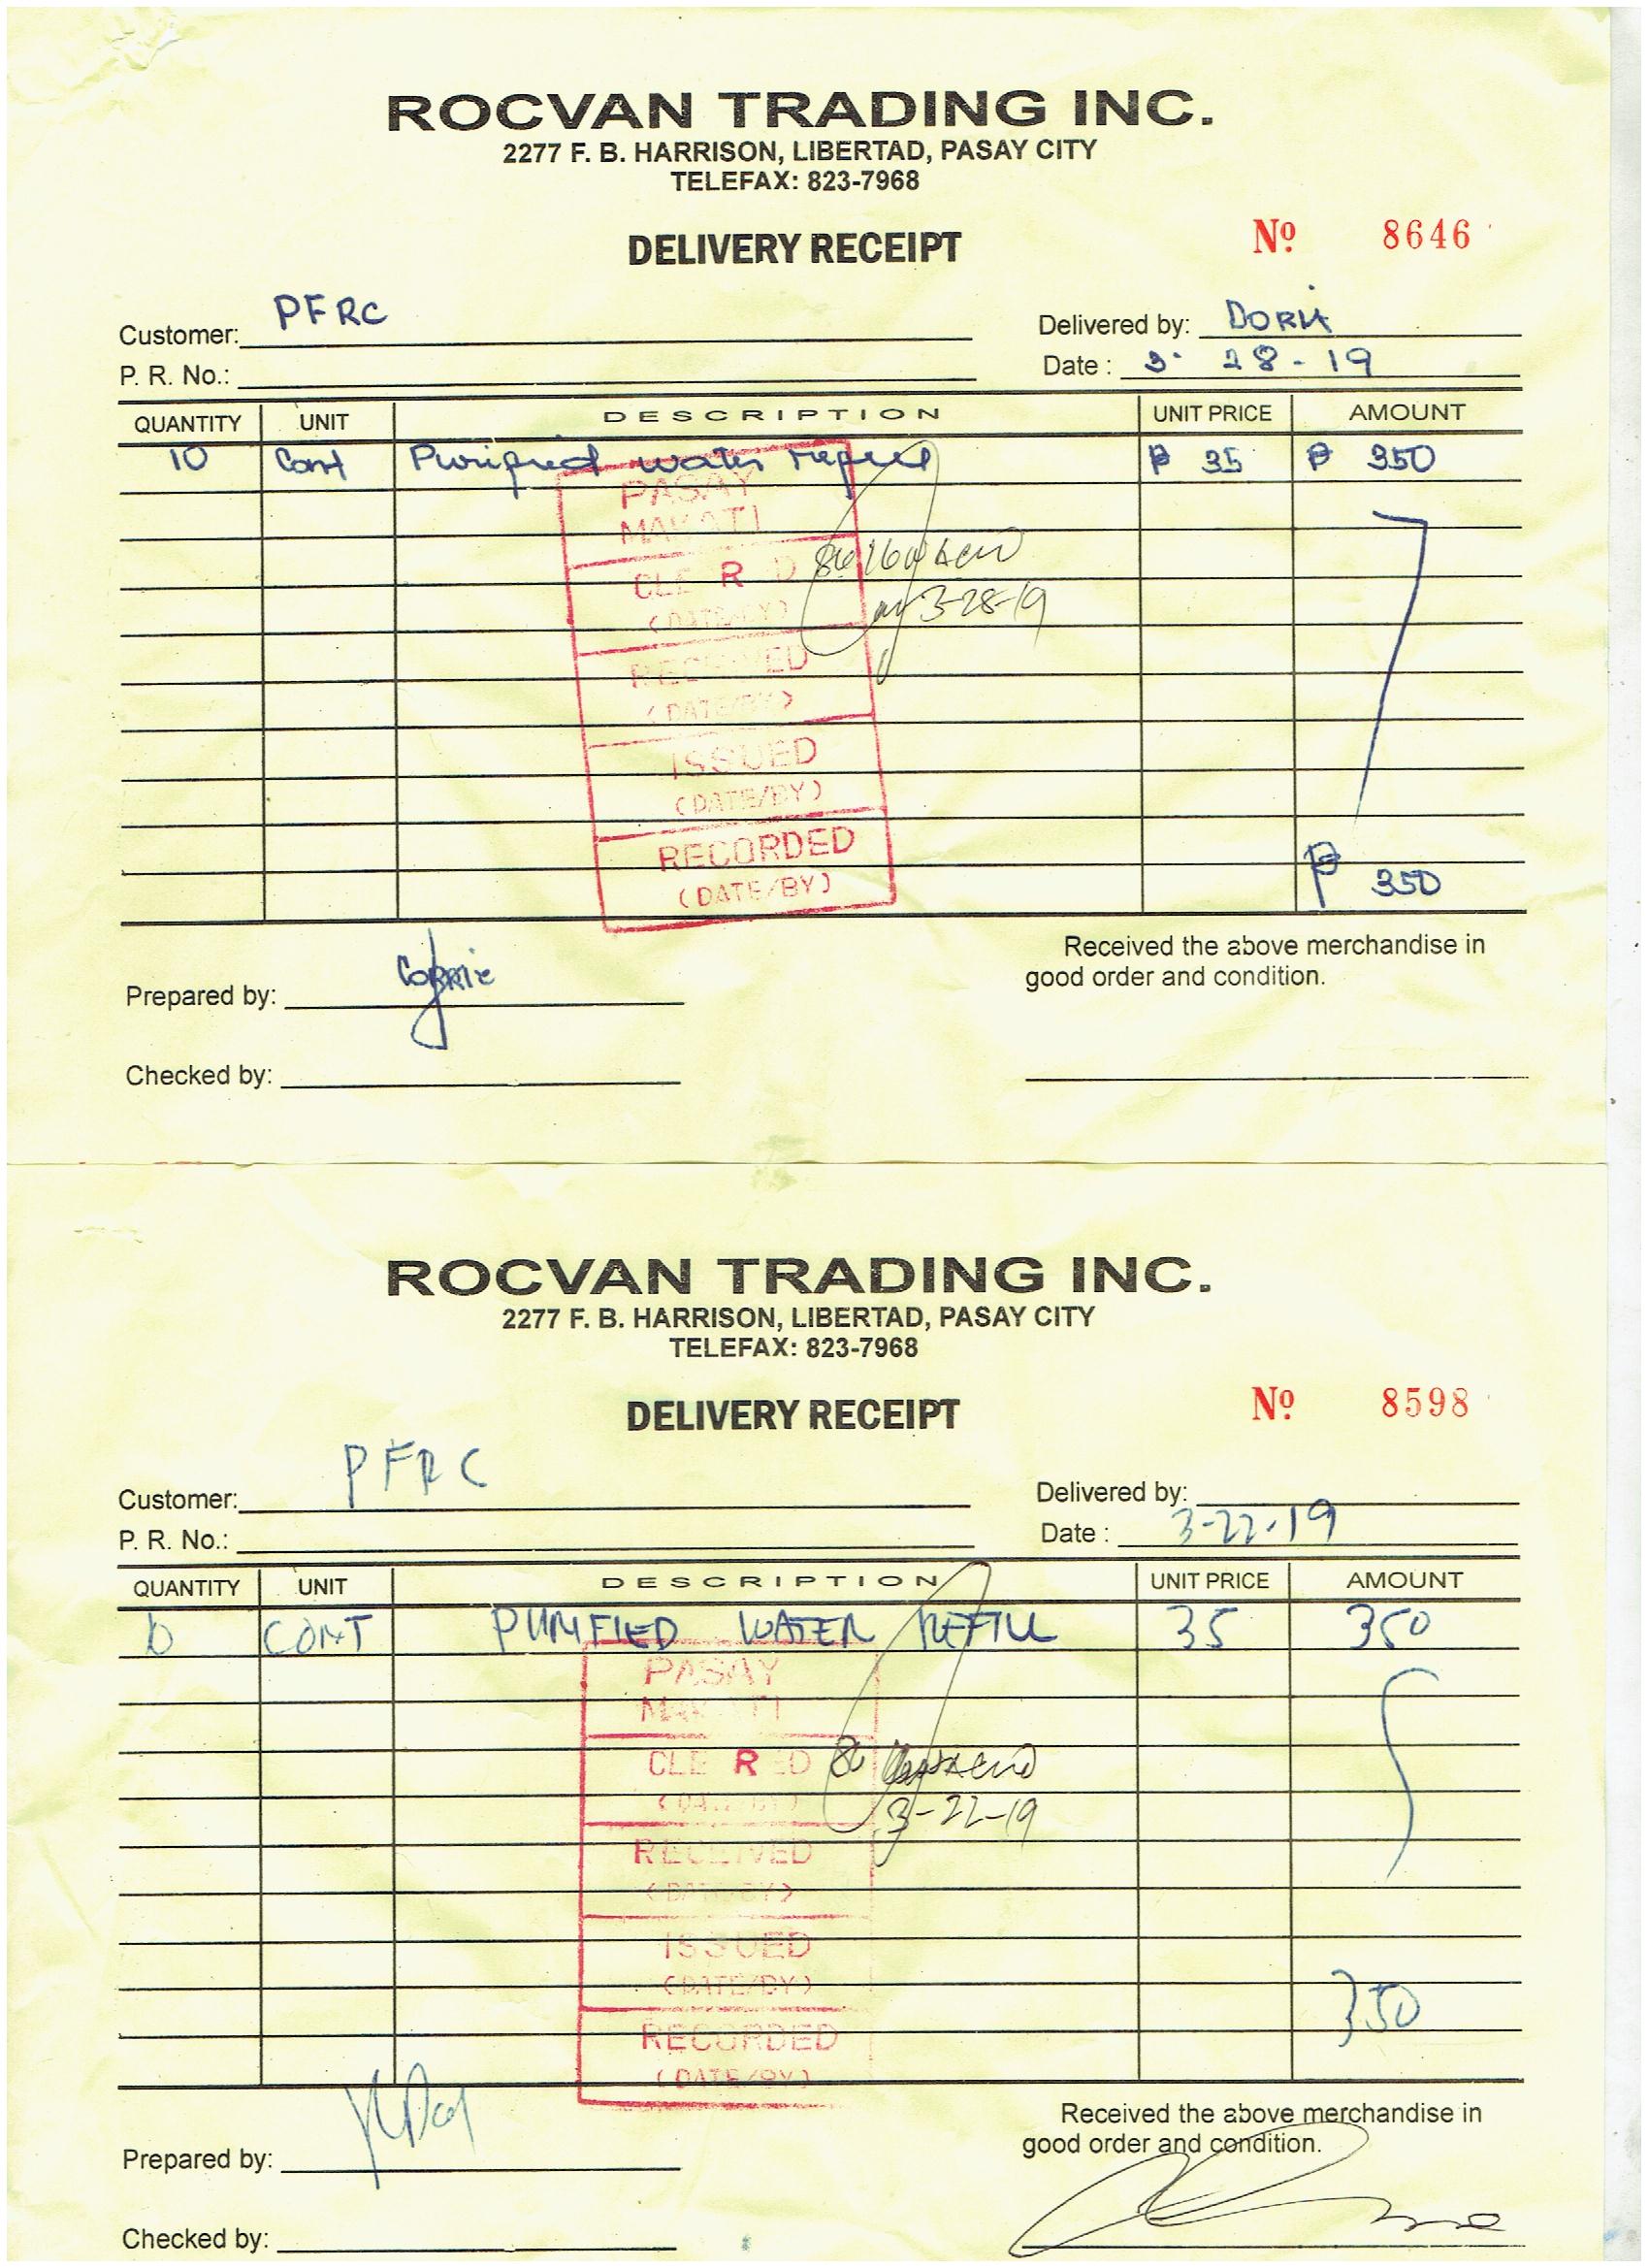 ROCVAN TRADING INC.
2277 F. B. HARRISON, LIBERTAD, PASAY CITY
TELEFAX: 823-7968
DELIVERY RECEIPT
Nº 8646
Customer: PFRC
Delivered by:
P. R. No.:
Date : 3-28-19
QUANTITY UNIT DESCRIPTION UNIT PRICE AMOUNT
10 Cont Purified water refill ₱ 35 ₱ 350
PASAY
MAKATI
CLE R D
(DATE/BY)
3-28-19
RECEIVED
(DATE/BY)
ISSUED
(DATE/BY)
RECORDED
(DATE/BY)
₱ 350
Received the above merchandise in
good order and condition.
Prepared by:
Checked by:
ROCVAN TRADING INC.
2277 F. B. HARRISON, LIBERTAD, PASAY CITY
TELEFAX: 823-7968
DELIVERY RECEIPT
Nº 8598
Customer: PFRC
Delivered by:
P. R. No.:
Date : 3-22-19
QUANTITY UNIT DESCRIPTION UNIT PRICE AMOUNT
10 CONT PURIFIED WATER REFILL 35 350
PASAY
MAKATI
CLE R ED
(DATE/BY)
3-22-19
RECEIVED
(DATE/BY)
ISSUED
(DATE/BY)
RECORDED
(DATE/BY)
350
Received the above merchandise in
good order and condition.
Prepared by:
Checked by: